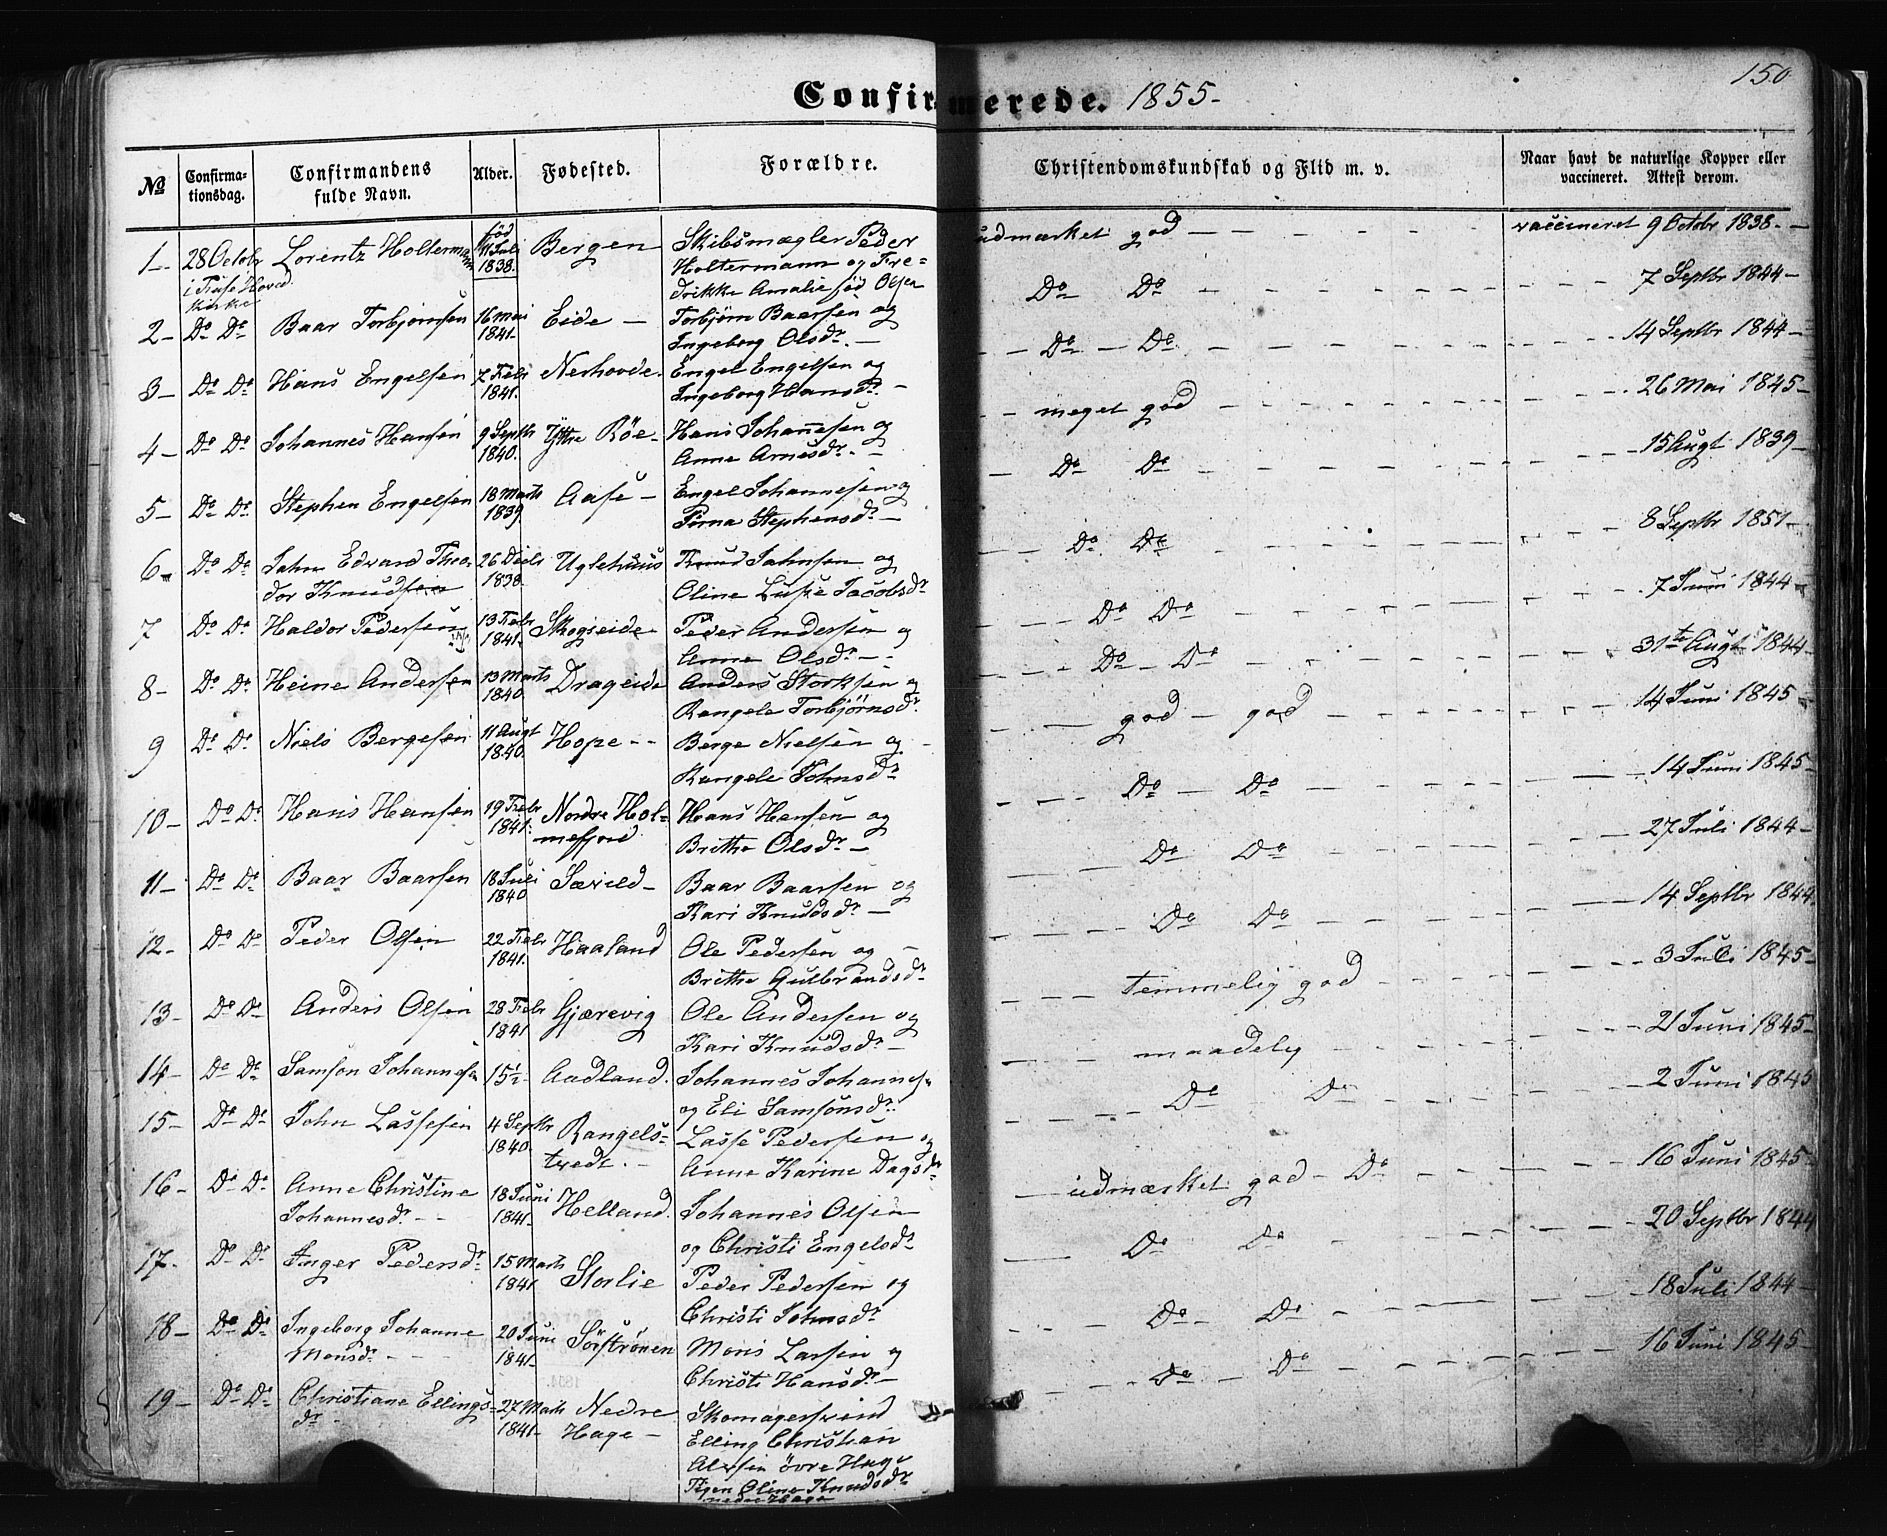 Confirmerede. 1855-
150
No
Confirma-
tionsdag.
Confirmandens
fulde Navn.
Alder.
Fødested.
Forældre.
Christendomskundskab og Flid m. v.
Naar havt de naturlige Kopper eller
vaccineret. Attest derom.
1- 28 Octobr Lorentz Holtermann fød 11 Juli 1838. Bergen Skibsmægler Peder udmærket god - - - - vaccineret 9 Octbr 1838. -
i Fuse Hoved
kirke
Holtermann og Fre=
drikke Amalie fød Olsen
2- Do Do Baar Torbjørnsen 16 Mai 1841- Eide - Torbjørn Baarsen og Do Do - - - - 7 Septbr 1844-
Ingeborg Olsdr. -
3- Do Do Hans Engelsen 7 Feb 1841. Nerhovde. Engel Engelsen og - - Do - Do - - - - 14 Septbr 1844-
Ingeborg Hansdr. -
4- Do Do Johannes Hansen 9 Septbr 1840. Ythre Röe- Hans Johannesen og - - meget god - - - - 26 Mai 1845-
Anne Arnesdr. -
5- Do Do Stephen Engelsen 18 Marts 1839 Aase - Engel Johannesen og - Do Do - - - - 15 Augt 1839-
Stephensdr. -
6- Do Do John Edvard Theo- 26 Decbr 1838. Uglehuus Knud Johnsen og - - Do. Do - - - - 8 Septbr 1851-
dor Knudsen
Oline Lusie Jacobsdr
7 Do Do Haldor Pedersen 13 Febr 1841. Skogseide Peder Andersen og Do Do - - - - 7 Juni 1844-
Anne Olsdr. - -
8- Do Do Heine Andersen 13 Marts 1840. Drageide Anders Storksen og - - Do - Do - - - - 31te Augt 1844-
Rangele Torbjørnsdr.
9 Do Do Niels Bergesen 11 Augt 1840. Hope - - Berge Nielsen og - - god - god - - - - 14 Juni 1845-
Rangele Johnsdr
10- Do Do Hans Hansen 19 Febr 1841. Nordre Hol= Hans Hansen og - - - Do - Do - - - - 14 Juni 1845-
mefjord.
Brithe Olsdr. -
11- Do Do Baar Baarsen 18 Juli 1840 Sævild- Baar Baarsen og - - - Do Do - - - - 27 Juli 1844-
Kari Knudsdr. -
12- Do Do Peder Olsen 22 Febr 1841. Haaland Ole Pedersen og - - - - Do Do - - - - 14 Septbr 1844
Brithe Gulbrandsdr
13- Do Do Anders Olsen 28 Febr 1841 Gjærevig Ole Andersen og - - - temmelig god - - - - 3 Juli 1845-
Kari Knudsdr. -
14- Do Do Samson Johannesen 15½- Aadland. Johannes Johannesn - - - - maadelig - - - - 21 Juni 1845-
og Eli Samsonsdr.
15- Do Do John Lassesen 4 Septbr 1840. Rangels= Lasse Pedersen og - - - Do Do - - - - 2 Juni 1845
trede. -
Anne Karine Dagsdr
16- Do Do Anne Christine 18 Juni 1841- Helland. Johannes Olsen - udmærket god - Do - - - - 16 Juni 1845-
Johannesdr. - -
og Christi Engelsdr
17. Do Do Inger Pedersdr 15 Marts 1841 Storlie Peder Pedersen og - - Do Do - - - - 20 Septbr 1844
Christi Johnsdr
18- Do Do Ingeborg Johanne 20 Juni 1841- Sörströnen Mons Larsen og - - - Do Do - - - - 18 Juli 1844-
Monsdr. - -
Christi Hansdr. -
19- Do Do Christiane Ellings= 27 Marts 1841- Nedre Skomagersvend - - - Do - Do - - - - 16 Juni 1845-
dr. -
Hage -
Elling Christian
øvre Hage
Oline Knudsdr
nedre Hage